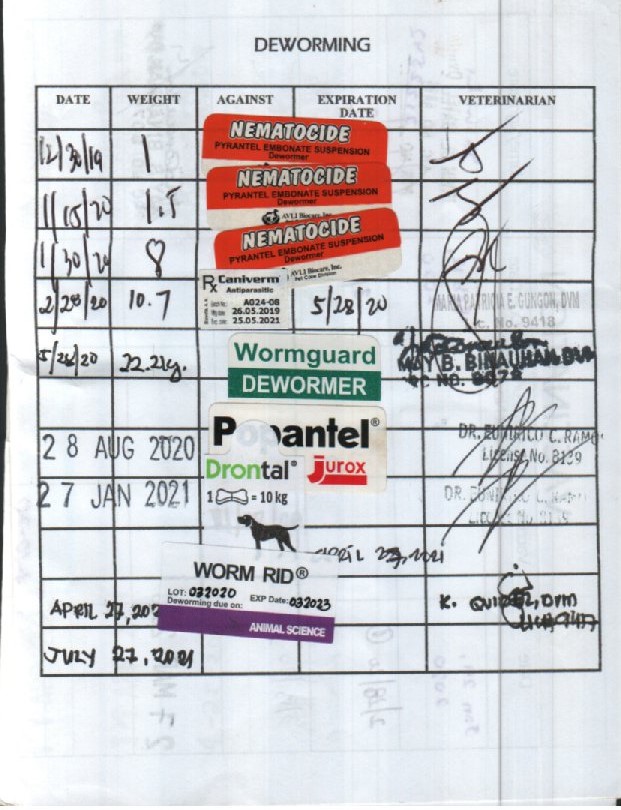 DEWORMING
DATE WEIGHT AGAINST EXPIRATION DATE VETERINARIAN
12/30/19 1 NEMATOCIDE
PYRANTEL EMBONATE SUSPENSION
Dewormer
1/15/20 1.5 NEMATOCIDE
PYRANTEL EMBONATE SUSPENSION
Dewormer
AVLI Biocare, Inc.
1/30/20 8 NEMATOCIDE
PYRANTEL EMBONATE SUSPENSION
Dewormer
AVLI Biocare, Inc.
Pet Care Division
2/28/20 10.7 Rx Caniverm
Antiparasitic
A024-08
26.05.2019
25.05.2021
5/28/20
MARIA PATRICIA E. GUNGON, DVM
Lic. No. 9418
5/28/20 22.2kg. Wormguard
DEWORMER
B. BINAUHAN
NO.
28 AUG 2020 antel®
Drontal® Jurox
1 = 10 kg
DR. EUNIRICO C. RAMO
License No. 8139
27 JAN 2021
DR.
8139
APRIL 27, 2021
WORM RID®
LOT: 032020 EXP Date: 032023
Deworming due on:
ANIMAL SCIENCE
APRIL 27, 202 K. DVM
JULY 27, 2021